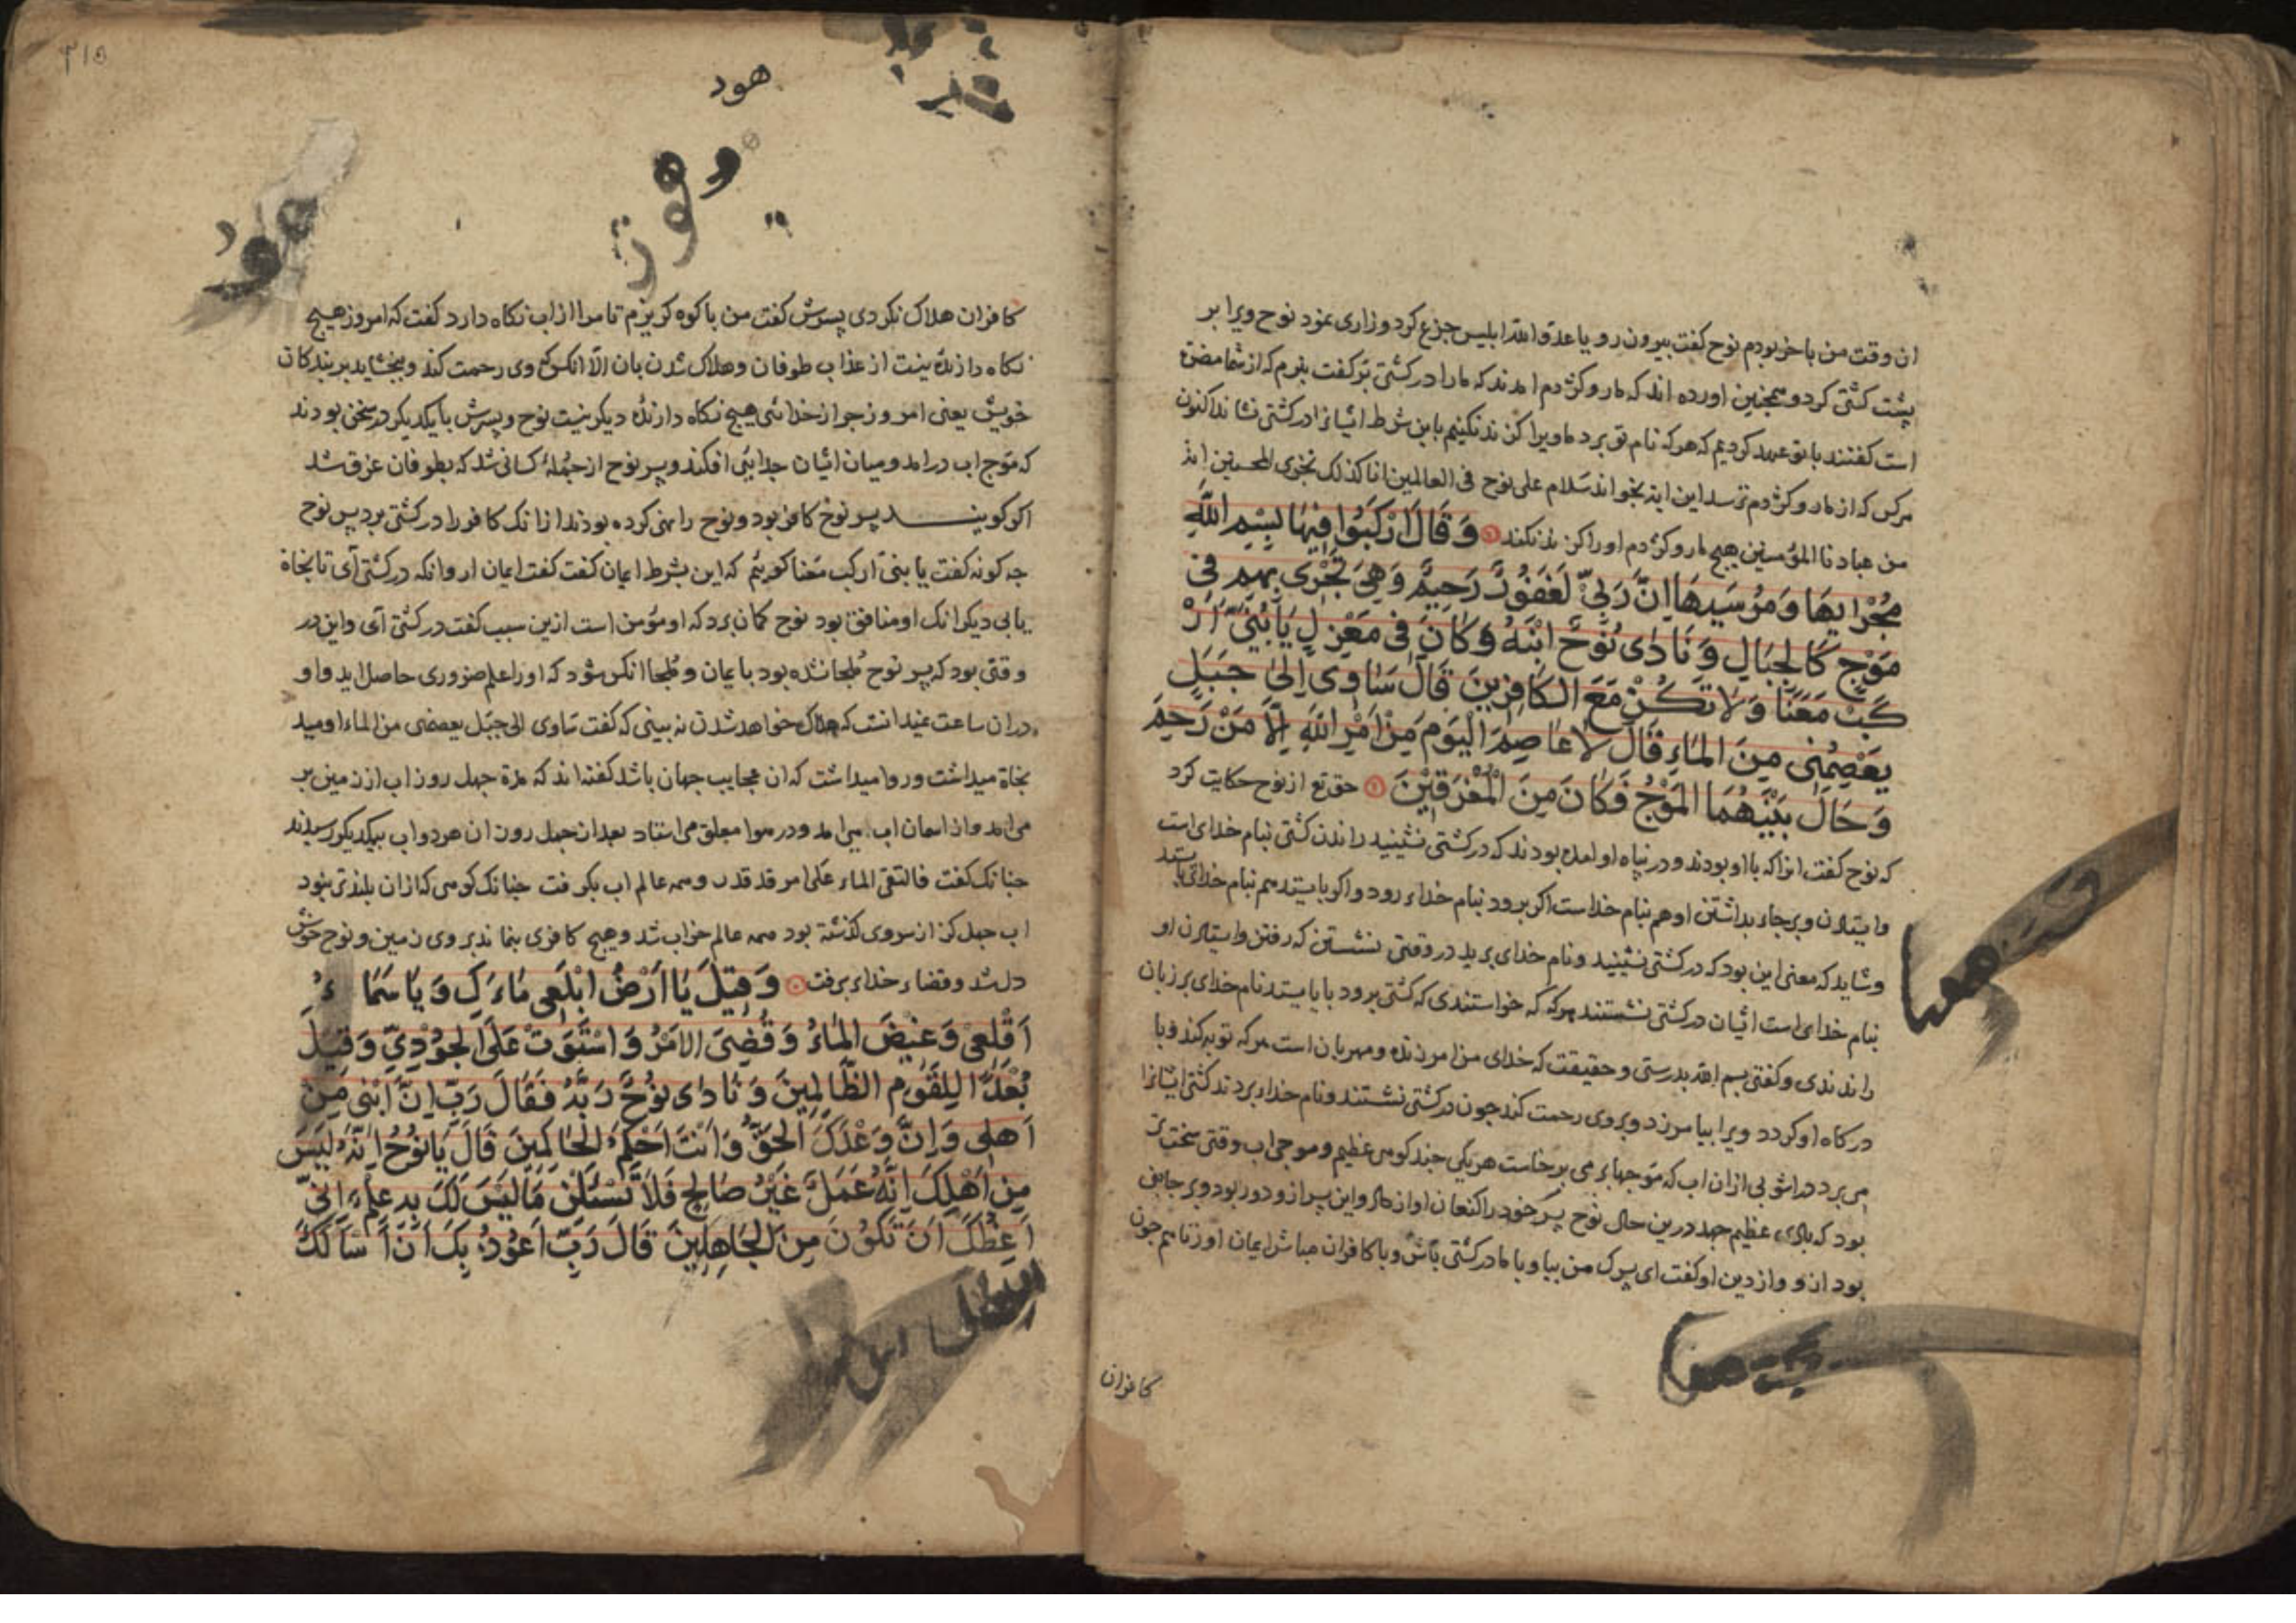 ان وقت من باخر بودم نوح کفت بیرون رو یا عدو الله ابلیس جزع کرد و زاری نمود نوح ویرا بر
پشت کشتی کرد و همجنین اورده اند که مار و کژدم امدند که ما را در کشتی بر کفت نبرم که از شما مضرت
است کفتند با تو عهد کردیم که هر که نام تو برد ما ویرا کزند نکنیم باین شرط ایشانرا در کشتی نشاند اکنون
هرکس که از مار و کژدم ترسد این ایة بخواند سلام علی نوح فی العالمین انا کذلک نجزی المحسنین انه
من عبادنا المؤمنین هیچ مار و کژدم او را کزند نکند وَقَالَ ارْكَبُوا فِيهَا بِسْمِ اللَّهِ
مَجْرٰىهَا وَمُرْسٰيهَا اِنَّ رَبّى لَغَفُورٌ رَحِيمٌ وَهِىَ تَجْرِى بِهِمْ فِى
مَوْجٍ كَالْجِبَالِ وَنَادٰى نُوحٌ ابْنَهُ وَكَانَ فِى مَعْزِلٍ يَا بُنَىَّ ارْ
كَبْ مَعَنَا وَلَا تَكُنْ مَعَ الْكَافِرِينَ قَالَ سَاٰوِى اِلٰى جَبَلٍ
يَعْصِمُنِى مِنَ الْمَاءِ قَالَ لَا عَاصِمَ الْيَوْمَ مِنْ اَمْرِ اللَّهِ اِلَّا مَنْ رَحِمَ
وَحَالَ بَيْنَهُمَا الْمَوْجُ فَكَانَ مِنَ الْمُغْرَقِينَ حق تع از نوح حکایت کرد
که نوح کفت انرا که با او بودند و در پناه او امده بودند که در کشتی نشینید راندن کشتی بنام خدای است
وایستادن و برجاء بداشتن او هم بنام خداست اکر برود بنام خداء رود و اکر بایستد هم بنام خدای بایستد
و شاید که معنی این بود که در کشتی نشینید و نام خدای برید در وقتی نشستن که رفتن و ایستادن او
بنام خدای است ایشان در کشتی نشستند هرکه که خواستندی که کشتی برود یا بایستد نام خدای بر زبان
راندندی و کفتی بسم الله بدرستی و حقیقت که خدای من امرزنده و مهربان است هرکه توبه کند و با
درکاه او کردد ویرا بیامرزد و بر وی رحمت کند جون در کشتی نشستند و نام خداء بردند کشتی ایشانرا
می برد در اشوبی از ان اب که موجها بر می برخاست هر یکی جند کوهی عظیم و موجی اب وقتی سخت تر
بود که بادی عظیم جهد درین حال نوح پسر خود را کنعان اواز داد و این پسر ازو دور بود و بر جانبی
بود ازو و از دین او کفت ای پسرک من بیا و با ما در کشتی باش و با کافران مباش ایمان اور تا هم جون
کافران
۳۱۵
هود
هود
کافران هلاک نکردی پسرش کفت من با کوه کریزم تا مرا از اب نکاه دارد کفت که امروز هیچ
نکاه دارنده نیست از عذاب طوفان و هلاک شدن بان الا انکس که وی رحمت کند و ببخشاید بر بندکان
خویش یعنی امروز جز از خدای هیچ نکاه دارنده دیکر نیست نوح و پسرش با یکدیکر در سخن بودند
که موج اب درامد و میان ایشان جدایی افکند و پسر نوح از جمله کسانی شد که بطوفان غرق شد
اکر کویند پسر نوح کافر بود و نوح را نهی کرده بودند از انک کافر را در کشتی برد پس نوح
جه کونه کفت یا بنی ارکب معنا کوییم که این بشرط ایمان کفت کفت ایمان ار وانکه در کشتی آی تا نجاة
یابی دیکر انک او منافق بود نوح کمان برد که او مؤمن است ازین سبب کفت در کشتی آی و این در
وقتی بود که پسر نوح ملجا نشده بود بایمان و ملجا انکس شود که او را علم ضروری حاصل اید و او
در ان ساعت نمیدانست که هلاک خواهد شدن نه بینی که کفت ساوی الی جبل یعصمنی من الماء اومید
نجاة میداشت و روا میداشت که ان عجایب جهان باشد کفته اند که مدة جهل روز اب از زمین بر
می امد و از اسمان اب می امد و در هوا معلق می استاد بعد از جهل روز ان هر دو اب بیکدیکر رسیدند
جنانک کفت فالتقی الماء علی امر قد قدر و همه عالم اب بکرفت جنانک کوهی که ازان بلندتر نبود
اب جهل کز از سر وی کذشته بود همه عالم خراب شد و هیچ کافری بنماند بر وی زمین و نوح خوش
دل شد و قضاء خداء برفت وَقِيلَ يَا اَرْضُ ابْلَعِى مَاءَكِ وَيَا سَمَاءُ
اَقْلِعِى وَغِيضَ الْمَاءُ وَقُضِىَ الْاَمْرُ وَاسْتَوَتْ عَلَى الْجُودِىِّ وَقِيلَ
بُعْدًا لِلْقَوْمِ الظَّالِمِينَ وَنَادٰى نُوحٌ رَبَّهُ فَقَالَ رَبِّ اِنَّ ابْنِى مِنْ
اَهْلِى وَاِنَّ وَعْدَكَ الْحَقُّ وَاَنْتَ اَحْكَمُ الْحَاكِمِينَ قَالَ يَا نُوحُ اِنَّهُ لَيْسَ
مِنْ اَهْلِكَ اِنَّهُ عَمَلٌ غَيْرُ صَالِحٍ فَلَا تَسْئَلْنِ مَا لَيْسَ لَكَ بِهِ عِلْمٌ اِنِّى
اَعِظُكَ اَنْ تَكُونَ مِنَ الْجَاهِلِينَ قَالَ رَبِّ اَعُوذُ بِكَ اَنْ اَسْاَلَكَ